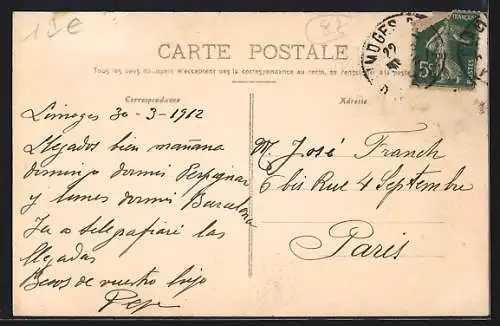 15€
82
CARTE POSTALE
Tous les pays étrangers n'acceptent pas la correspondance au recto, se renseigner à la poste
Correspondance
Adresse
LIMOGES
22
5c
POSTES
Limoges 30-3-1912
Llegados bien mañana
domingo dormi Perpignan
y lunes dormi Barcelona
Ya os telegrafiaré las
llegadas
Besos de vuestro hijo
Pepe
M. José Franch
6 bis Rue 4 Septembre
Paris